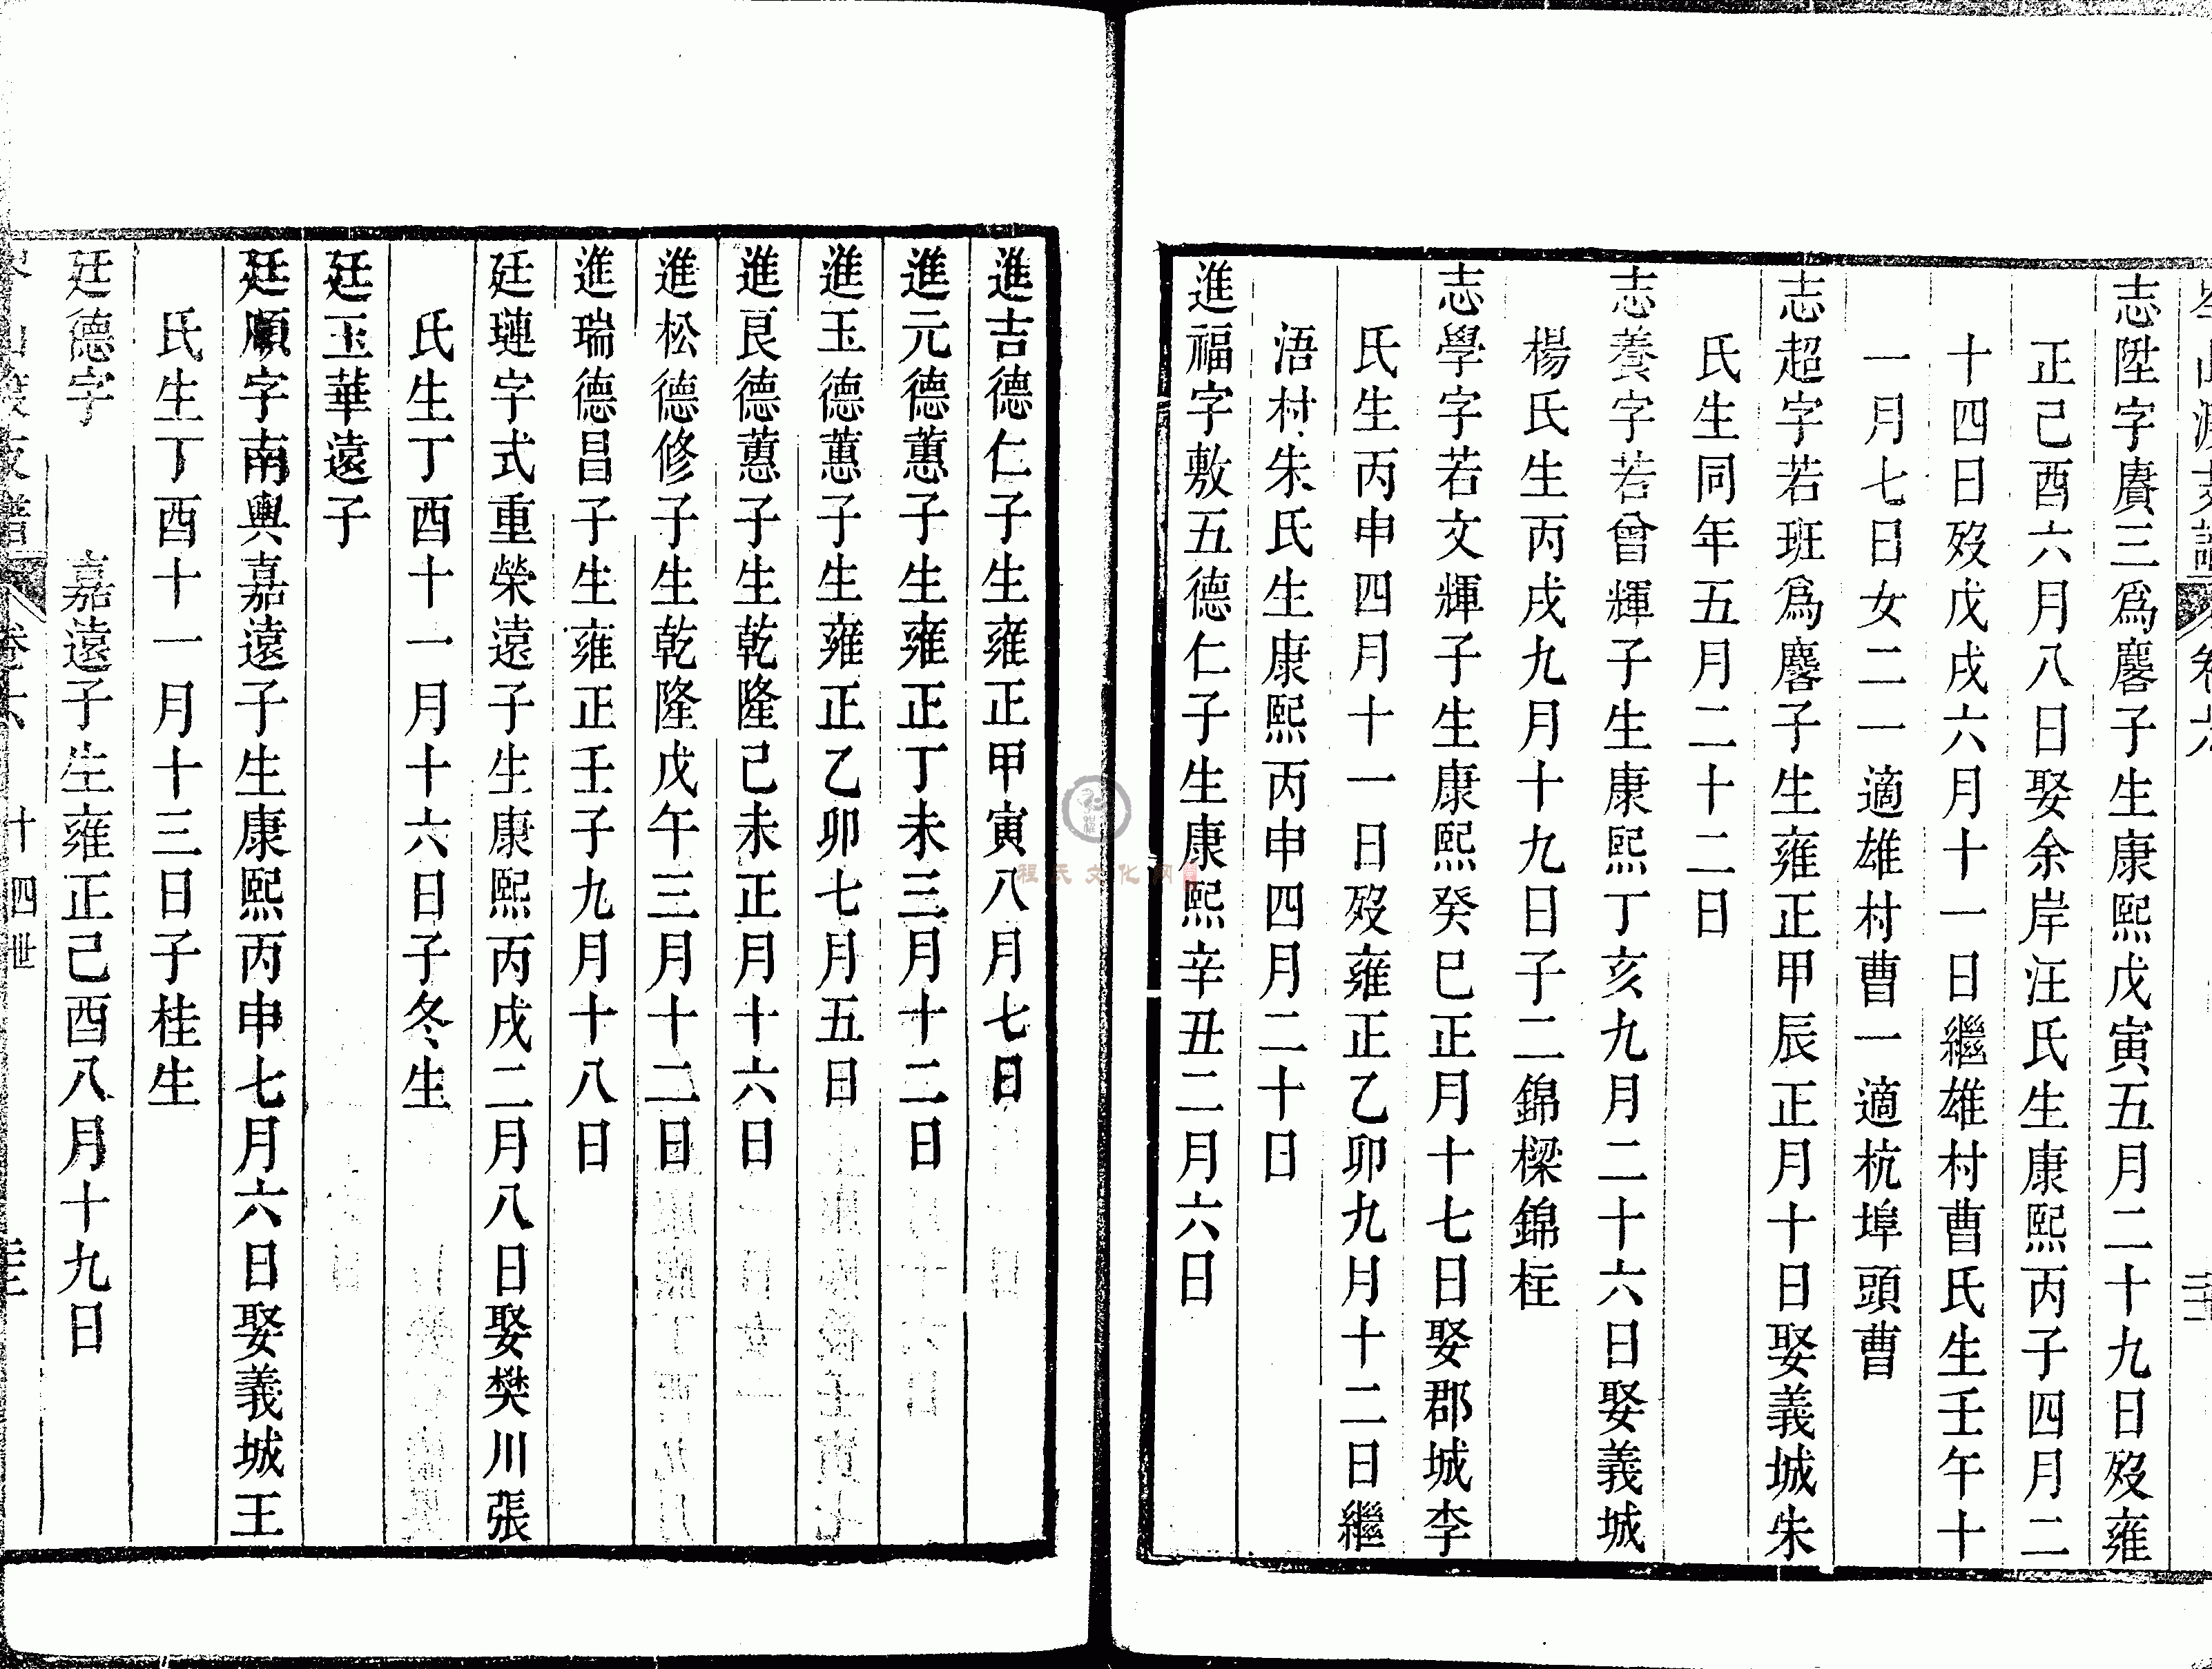 志陞字賡三爲麐子生康熙戊寅五月二十九日歿雍
正己酉六月八日娶余岸汪氏生康熙丙子四月二
十四日歿戊戌六月十一日繼雄村曹氏生壬午十
一月七日女二一適雄村曹一適杭埠頭曹
志超字若班爲麐子生雍正甲辰正月十日娶義城朱
氏生同年五月二十二日
志養字若曾輝子生康熙丁亥九月二十六日娶義城
楊氏生丙戌九月十九日子二錦樑錦柱
志學字若文輝子生康熙癸巳正月十七日娶郡城李
氏生丙申四月十一日歿雍正乙卯九月十二日繼
浯村朱氏生康熙丙申四月二十日
進福字敷五德仁子生康熙辛丑二月六日
進吉德仁子生雍正甲寅八月七日
進元德蕙子生雍正丁未三月十二日
進玉德蕙子生雍正乙卯七月五日
進良德蕙子生乾隆己未正月十六日
進松德修子生乾隆戊午三月十二日
進瑞德昌子生雍正壬子九月十八日
廷璉字式重榮遠子生康熙丙戌二月八日娶樊川張
氏生丁酉十一月十六日子冬生
廷玉華遠子
廷順字南輿嘉遠子生康熙丙申七月六日娶義城王
氏生丁酉十一月十三日子桂生
廷德字 嘉遠子生雍正己酉八月十九日
卷六 十四世
程氏文化网